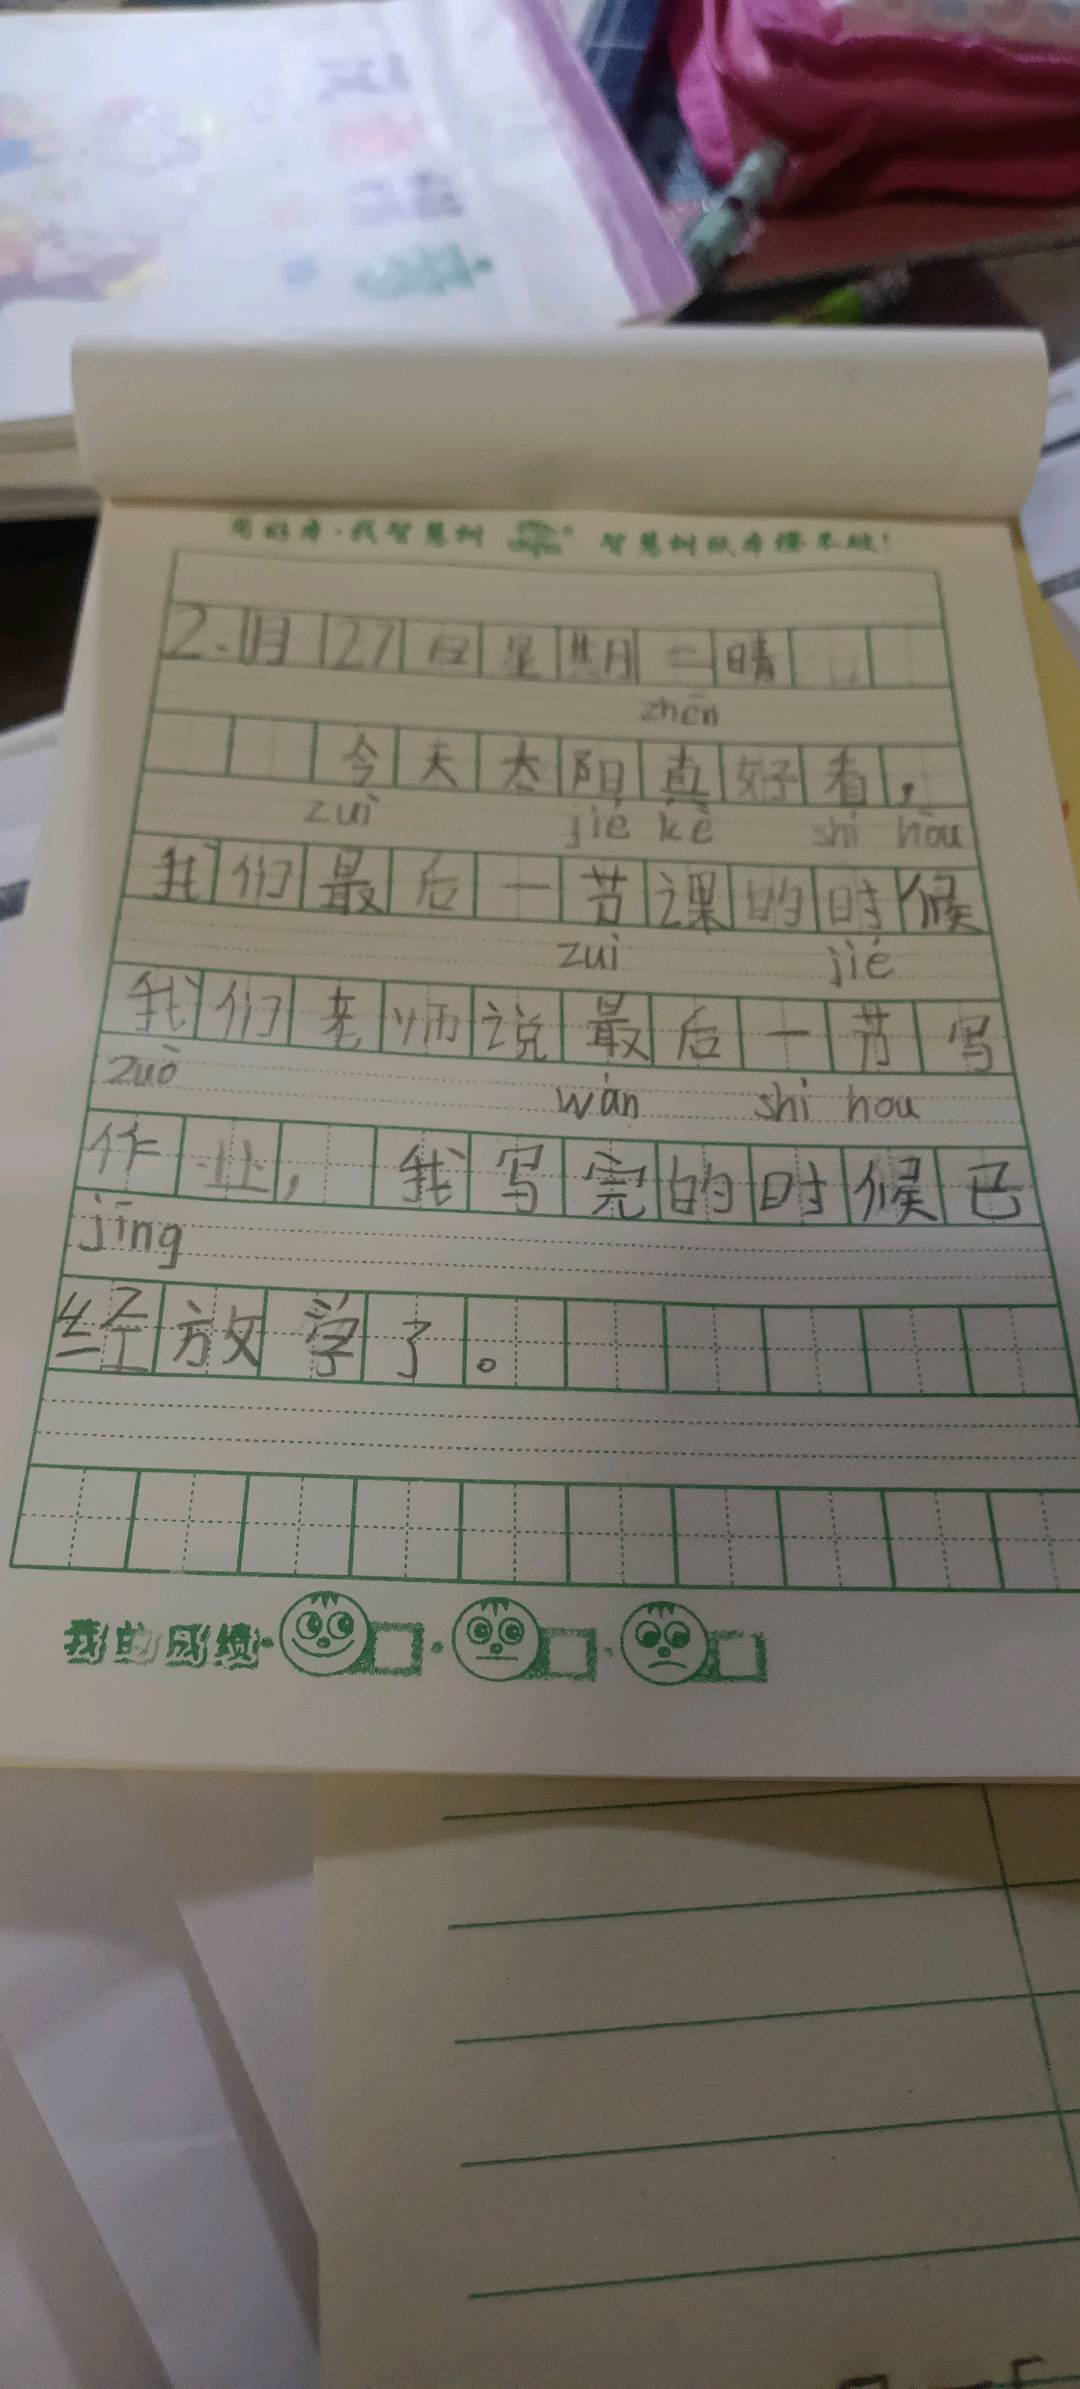 用好本·找智慧树 智慧树纸本擦不破!
2.月27日星期二晴
zhēn
今天太阳真好看,
zuì jié kè shí hòu
我们最后一节课的时候
zuì jié
我们老师说最后一节写
zuò wán shí hou
作业, 我写完的时候已
jīng
经放学了。
我的成绩·